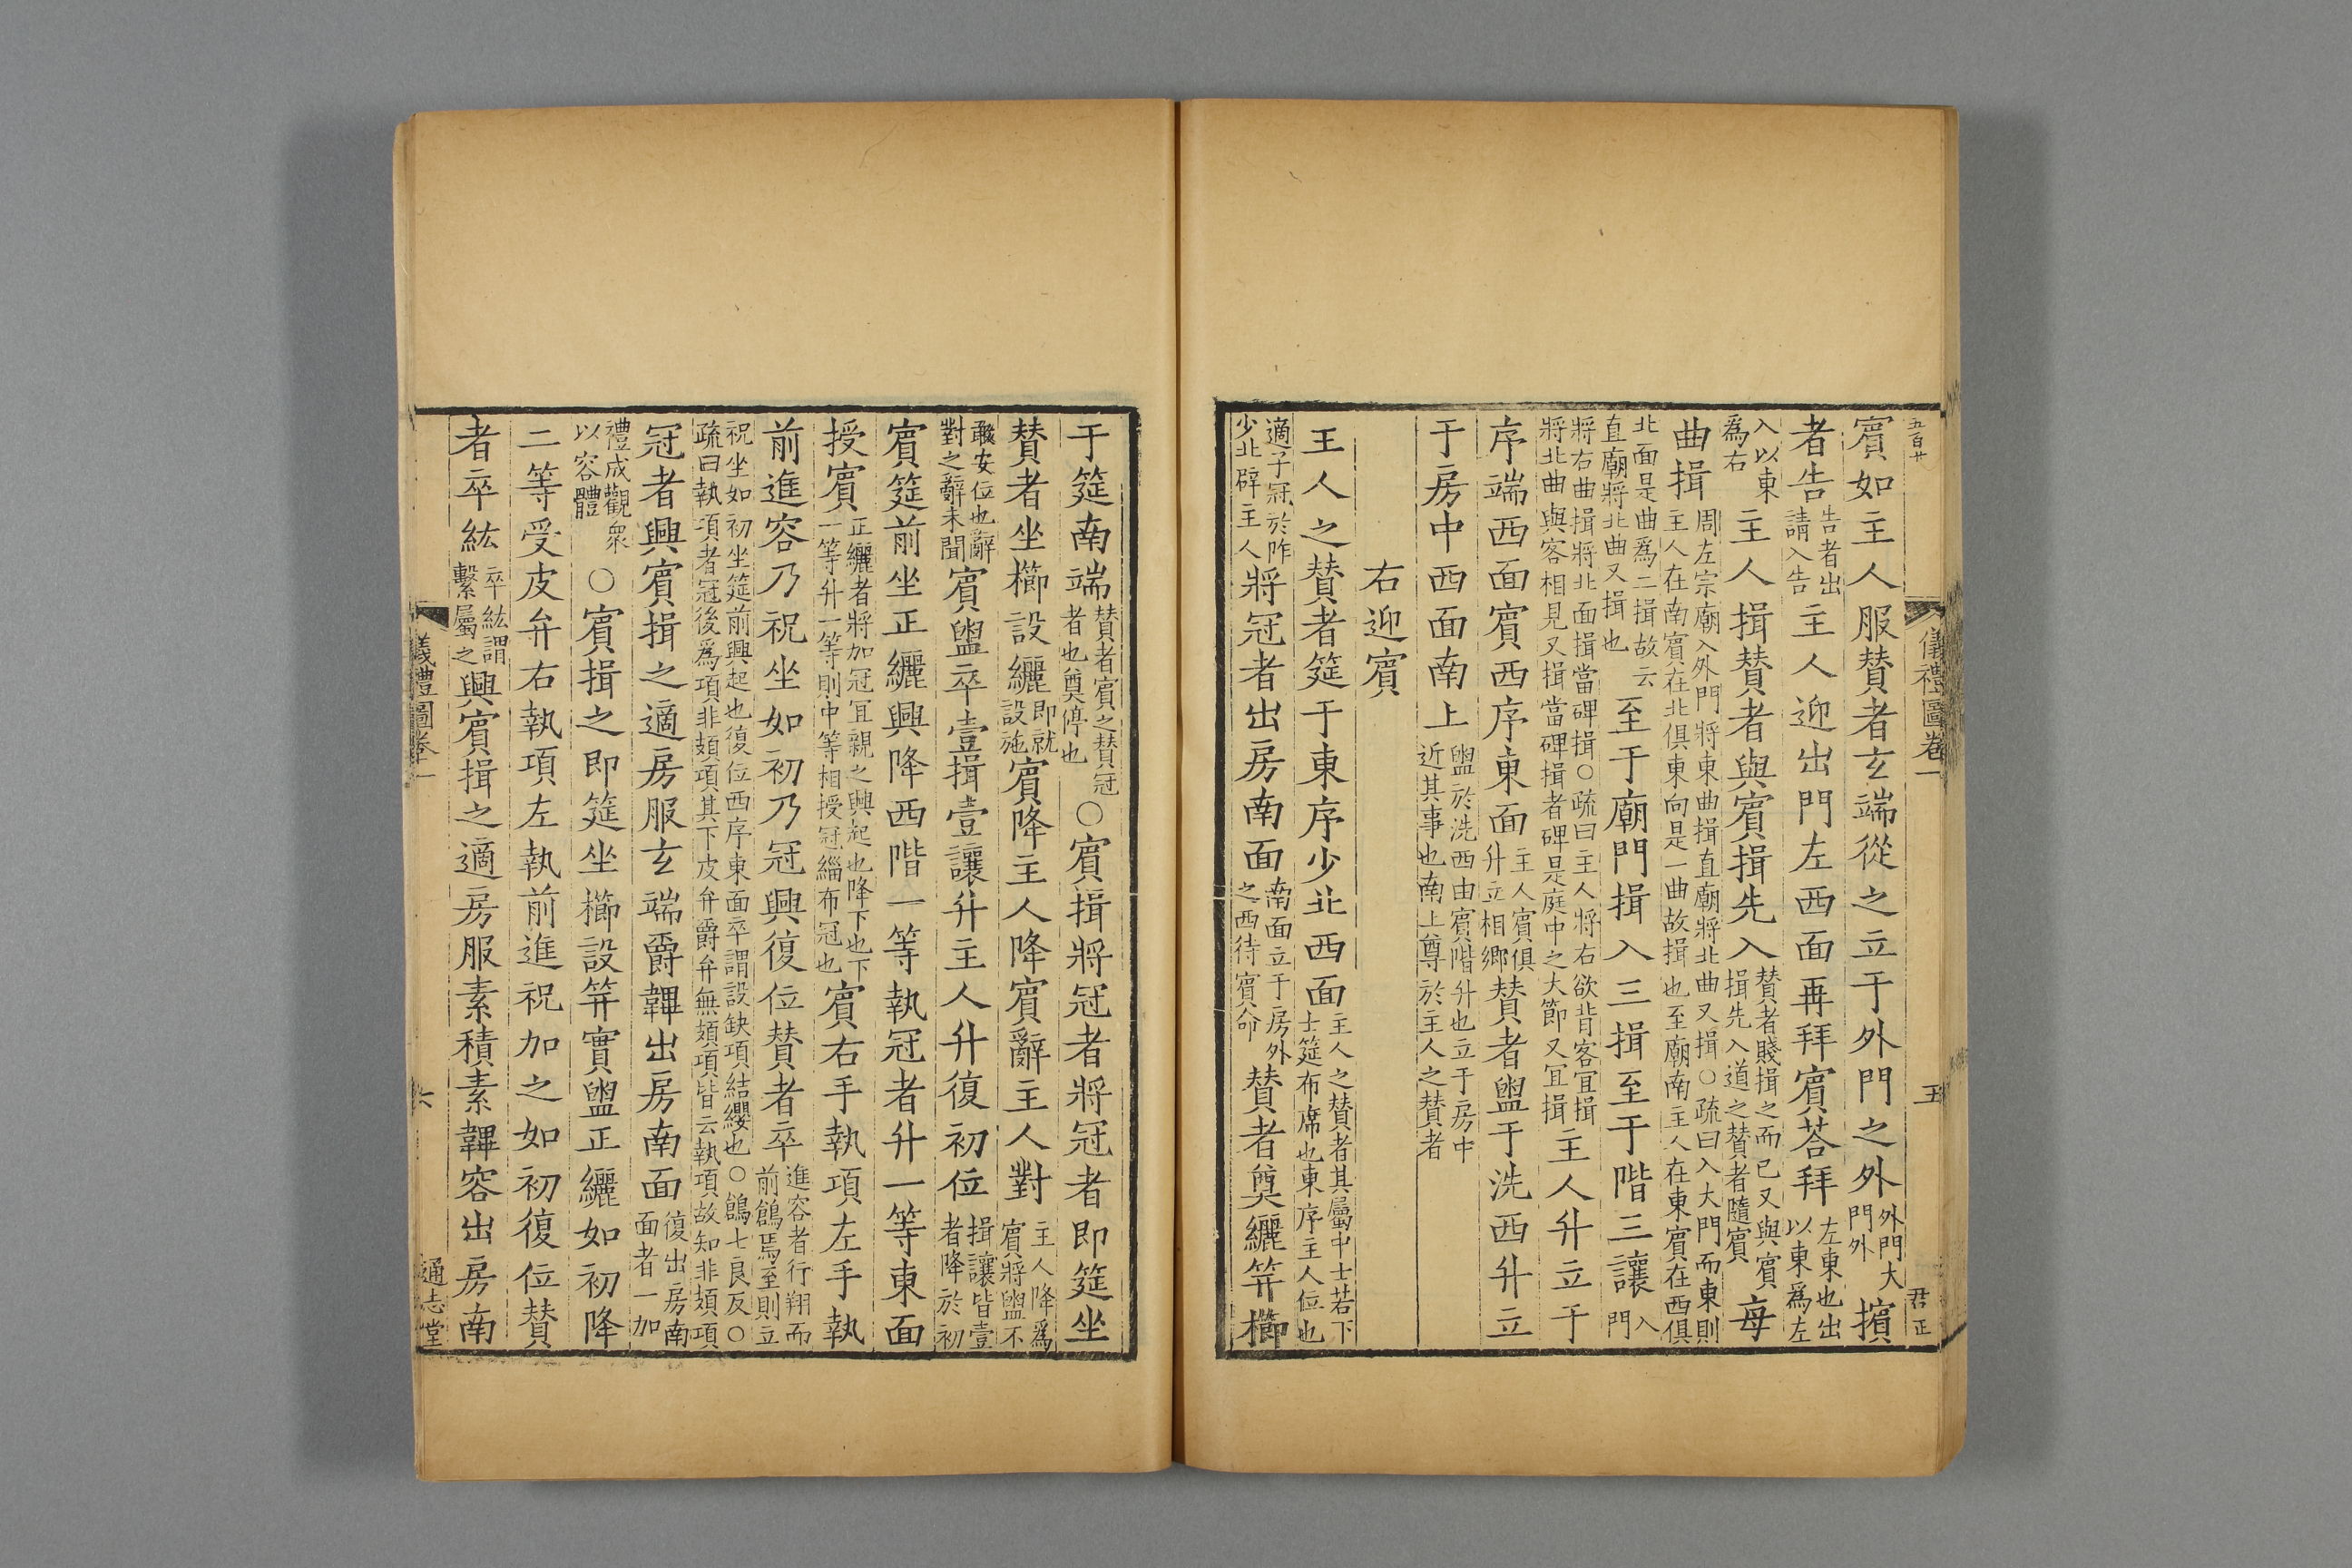 五百廿
儀禮圖卷一
五
君正
賓如主人服贊者玄端從之立于外門之外外門大門外擯
者告告者出請入告主人迎出門左西面再拜賓荅拜左東也出以東爲左
入以東爲右主人揖贊者與賓揖先入贊者賤揖之而已又與賓揖先入道之贊者隨賓每
曲揖周左宗廟入外門將東曲揖直廟將北曲又揖○疏曰入大門而東則主人在南賓在北俱東向是一曲故揖也至廟南主人在東賓在西俱
北面是曲爲二揖故云直廟將北曲又揖也至于廟門揖入三揖至于階三讓入門
將右曲揖將北面揖當碑揖○疏曰主人將右欲背客宜揖將北曲與客相見又揖當碑揖者碑是庭中之大節又宜揖主人升立于
序端西面賓西序東面主人賓俱升立相鄉贊者盥于洗西升立
于房中西面南上盥於洗西由賓階升也立于房中近其事也南上尊於主人之贊者
右迎賓
主人之贊者筵于東序少北西面主人之贊者其屬中士若下士筵布席也東序主人位也
適子冠於阼少北辟主人將冠者出房南面南面立于房外之西待賓命贊者奠纚笄櫛
于筵南端贊者賓之贊冠者也奠停也○賓揖將冠者將冠者即筵坐
贊者坐櫛設纚即就設施賓降主人降賓辭主人對主人降爲賓將盥不
敢安位也辭對之辭未聞賓盥卒壹揖壹讓升主人升復初位揖讓皆壹者降於初
賓筵前坐正纚興降西階一等執冠者升一等東面
授賓正纚者將加冠宜親之興起也降下也下一等升一等則中等相授冠緇布冠也賓右手執項左手執
前進容乃祝坐如初乃冠興復位贊者卒進容者行翔而前鶬焉至則立
祝坐如初坐筵前興起也復位西序東面卒謂設缺項結纓也○鶬七良反○疏曰執項者冠後爲項非頍項其下皮弁爵弁無頍項皆云執項故知非頍項
冠者興賓揖之適房服玄端爵韠出房南面復出房南面者一加
禮成觀衆以容體○賓揖之即筵坐櫛設笄賓盥正纚如初降
二等受皮弁右執項左執前進祝加之如初復位贊
者卒紘卒紘謂繫屬之興賓揖之適房服素積素韠容出房南
儀禮圖卷一
六
通志堂